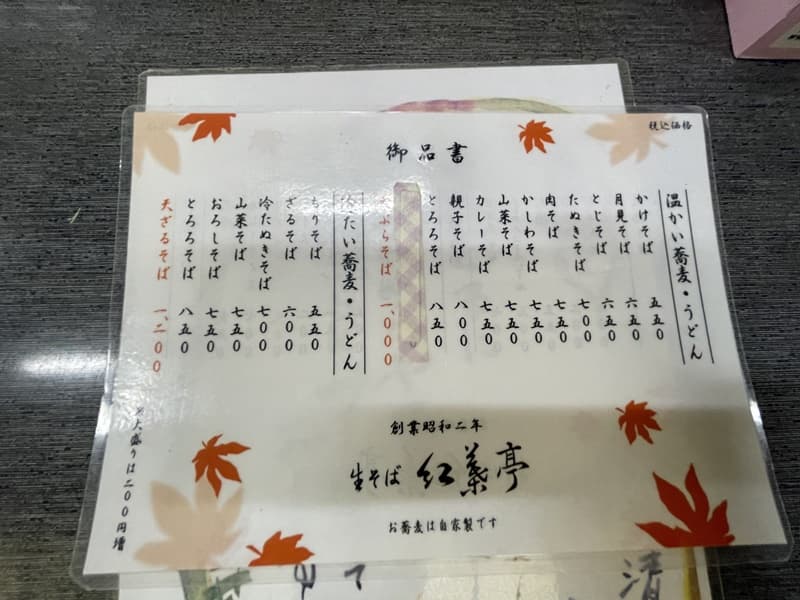 税込価格
御品書
温かい蕎麦・うどん
かけそば 五五〇
月見そば 六五〇
とじそば 六五〇
たぬきそば 七〇〇
肉そば 七五〇
かしわそば 七五〇
山菜そば 七五〇
カレーそば 七五〇
親子そば 八〇〇
とろろそば 八五〇
ぷらそば 一、〇〇〇
冷たい蕎麦・うどん
もりそば 五五〇
ざるそば 六〇〇
冷たぬきそば 七〇〇
山菜そば 七五〇
おろしそば 七五〇
とろろそば 八五〇
天ざるそば 一、二〇〇
大盛りは二〇〇円増
創業昭和二年
生そば 紅葉亭
お蕎麦は自家製です
清